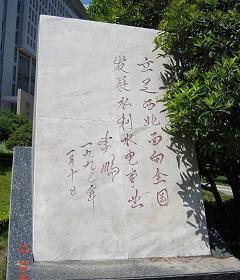 立足西北面向全国
发展水利水电事业
李鹏
一九九七年
一月十日